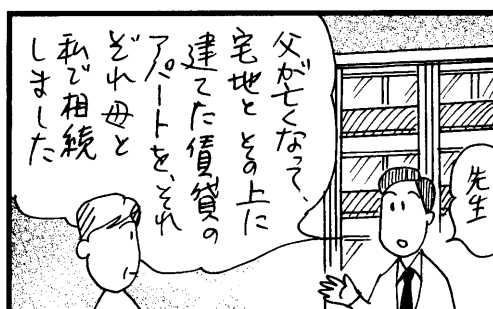 先生
父が亡くなって、
宅地とその上に
建てた賃貸の
アパートを、それ
ぞれ母と
私で相続
しました